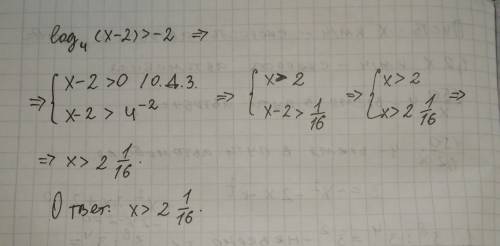 log₄ (x-2) > -2 ⇒
⇒ { x-2 > 0 / О.Д.З. ⇒ { x > 2 ⇒ { x > 2 ⇒
x-2 > 4⁻² x-2 > 1/16 x > 2 1/16
⇒ x > 2 1/16.
Ответ: x > 2 1/16.